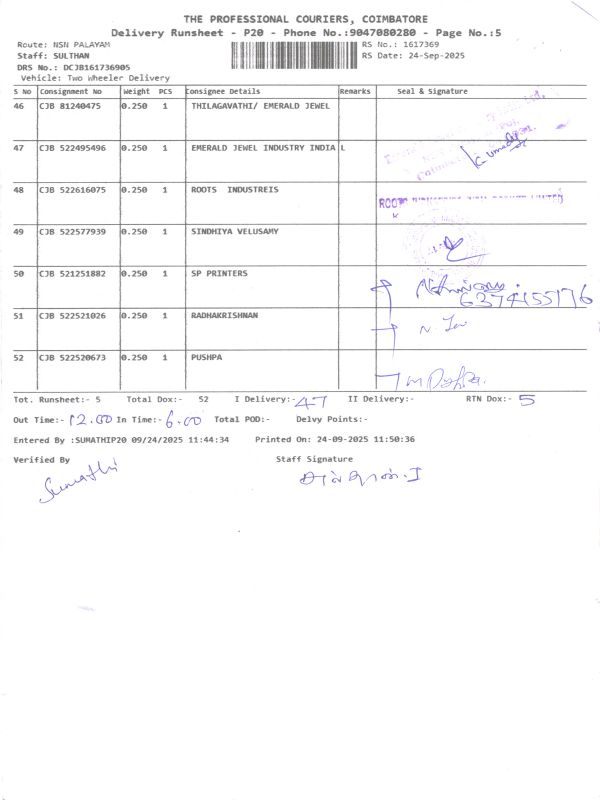 THE PROFESSIONAL COURIERS, COIMBATORE
Delivery Runsheet - P20 - Phone No.:9047080280 - Page No.:5
Route: NSN PALAYAM RS No.: 1617369
Staff: SULTHAN RS Date: 24-Sep-2025
DRS No.: DCJB161736905
Vehicle: Two Wheeler Delivery
S No Consignment No Weight PCS Consignee Details Remarks Seal & Signature
46 CJB 81240475 0.250 1 THILAGAVATHI/ EMERALD JEWEL
47 CJB 522495496 0.250 1 EMERALD JEWEL INDUSTRY INDIA L
48 CJB 522616075 0.250 1 ROOTS INDUSTREIS
49 CJB 522577939 0.250 1 SINDHIYA VELUSAMY
50 CJB 521251882 0.250 1 SP PRINTERS
6374155176
51 CJB 522521026 0.250 1 RADHAKRISHNAN
52 CJB 522520673 0.250 1 PUSHPA
Tot. Runsheet:- 5 Total Dox:- 52 I Delivery:- 47 II Delivery:- RTN Dox:- 5
Out Time:- 12.00 In Time:- 6.00 Total POD:- Delvy Points:-
Entered By :SUMATHIP20 09/24/2025 11:44:34 Printed On: 24-09-2025 11:50:36
Verified By Staff Signature
Sumathi சுல்தான்.I